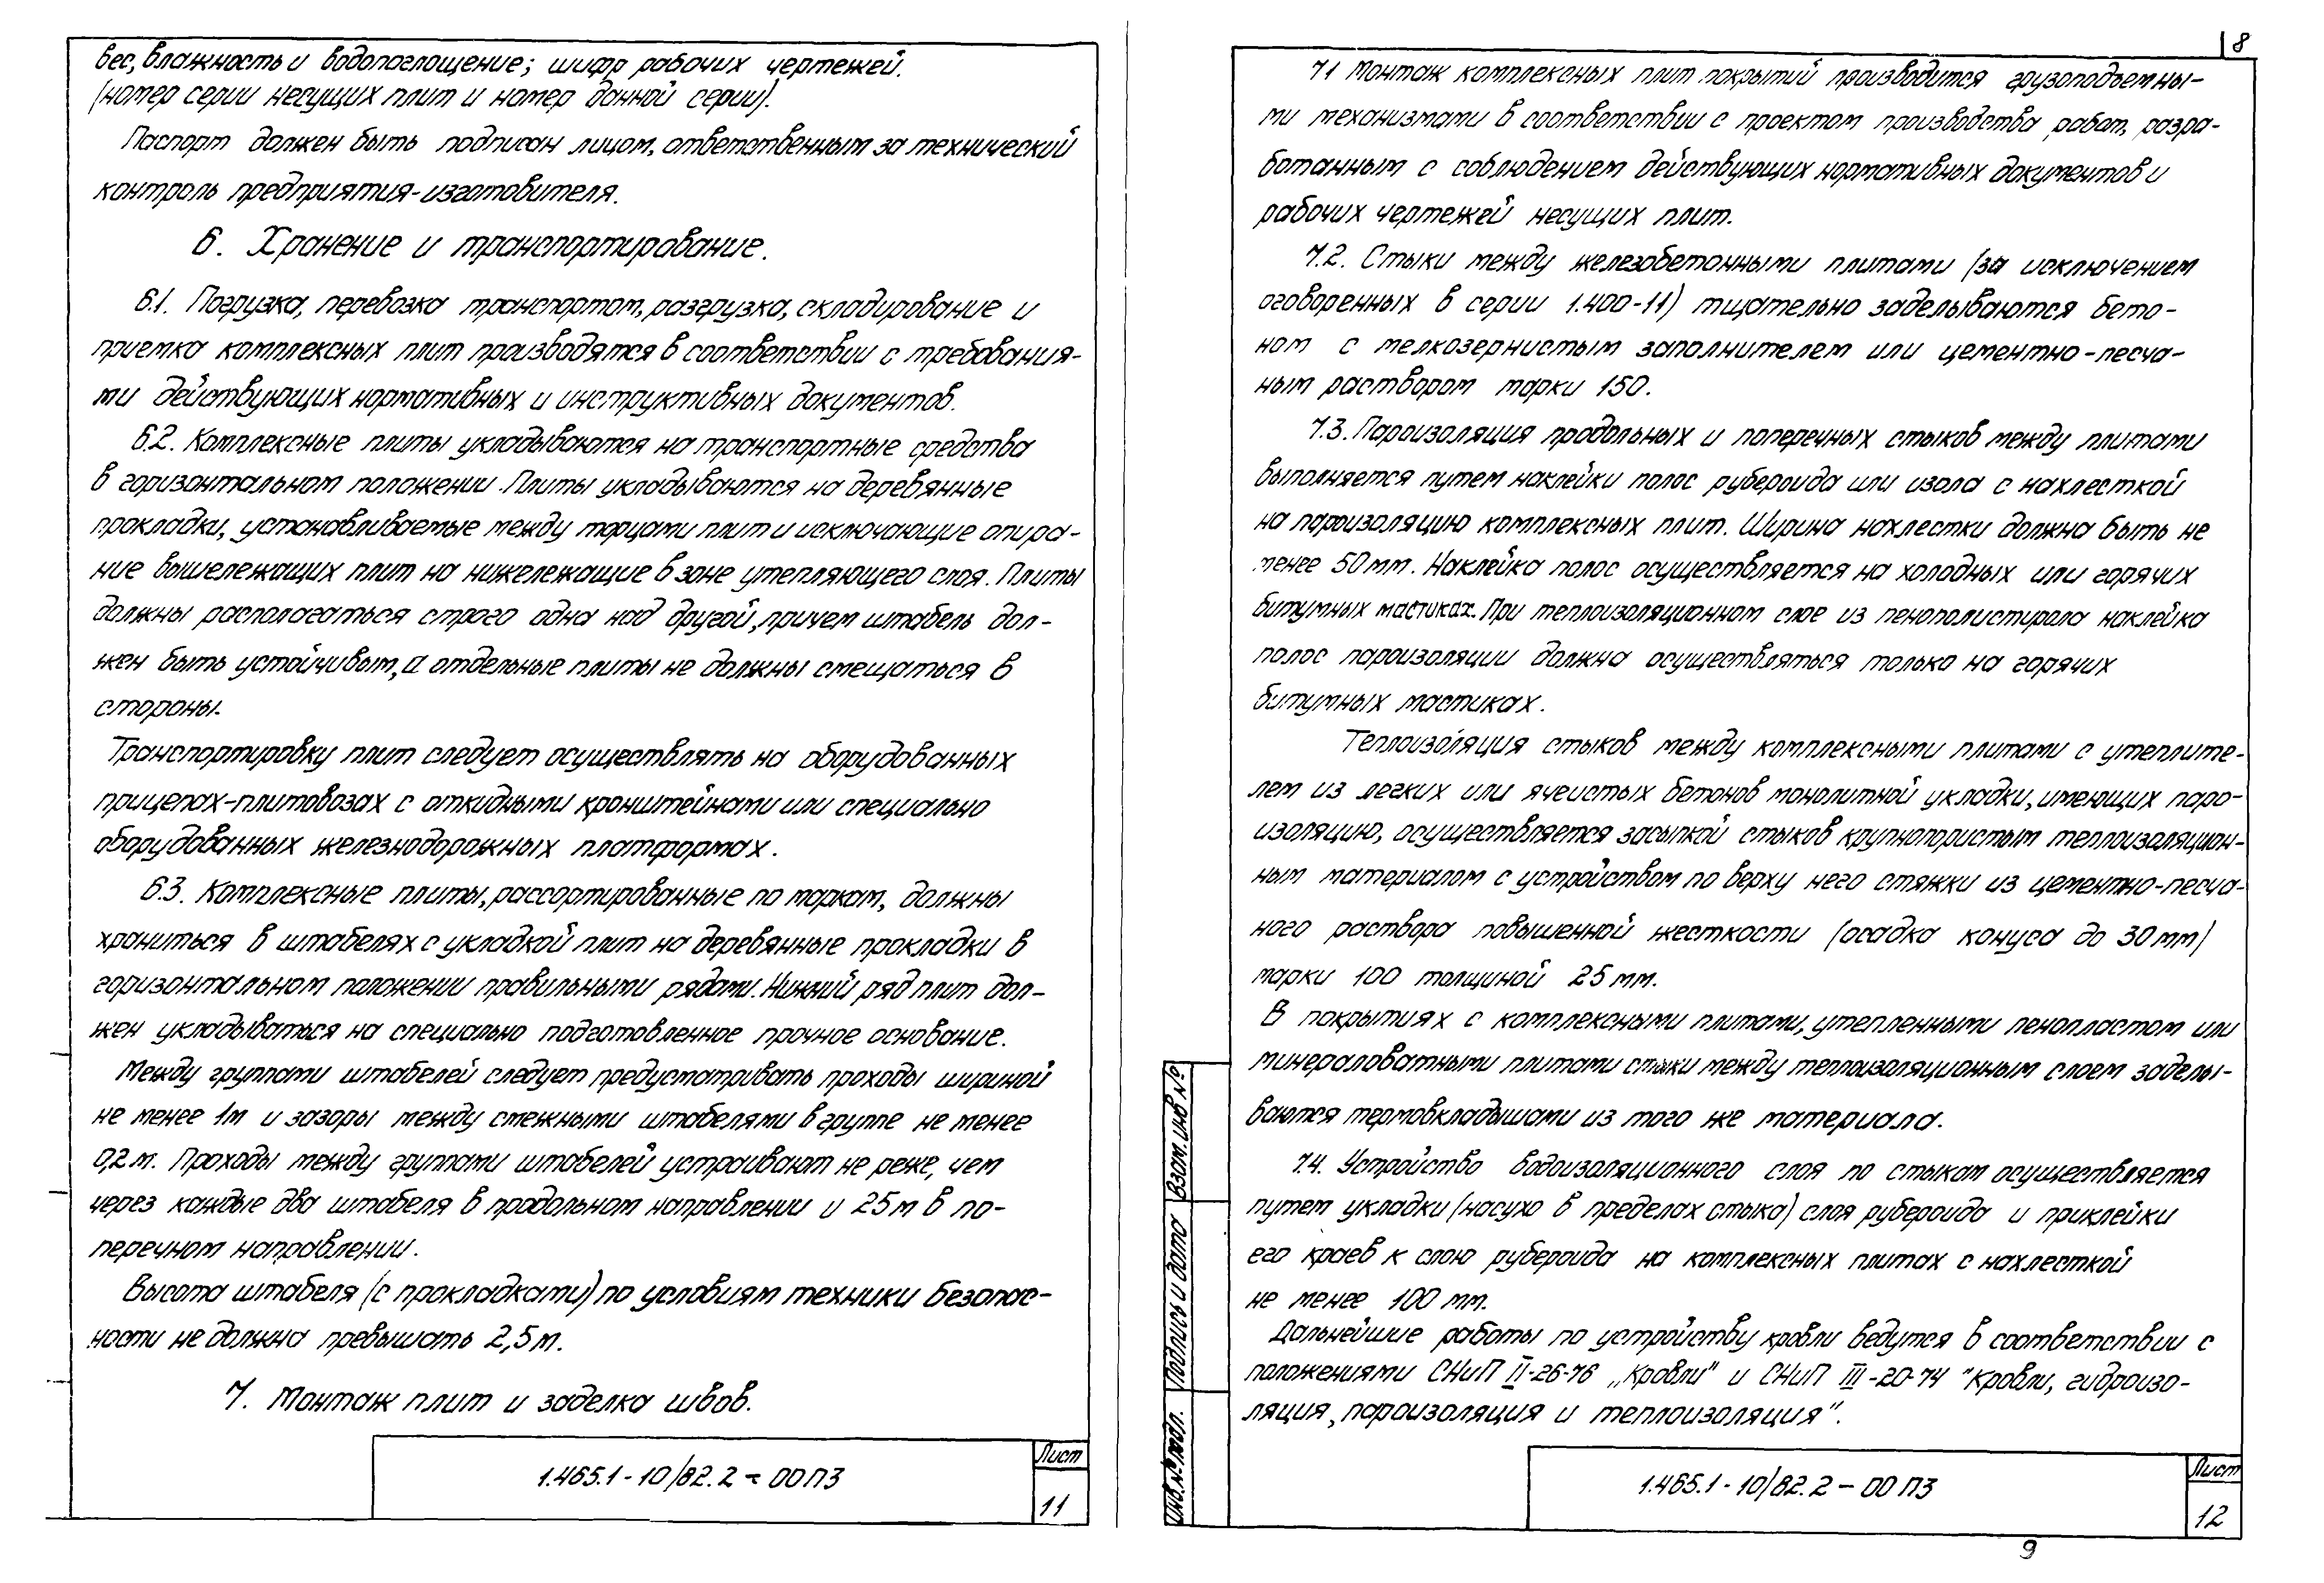 вес, влажность и водопоглощение; шифр рабочих чертежей.
(номер серии несущих плит и номер данной серии).
Паспорт должен быть подписан лицом, ответственным за технический
контроль предприятия-изготовителя.
6. Хранение и транспортирование.
6.1. Погрузка, перевозка транспортом, разгрузка, складирование и
приемка комплексных плит производятся в соответствии с требования-
ми действующих нормативных и инструктивных документов.
6.2. Комплексные плиты укладываются на транспортные средства
в горизонтальном положении. Плиты укладываются на деревянные
прокладки, устанавливаемые между торцами плит и исключающие опира-
ние вышележащих плит на нижележащие в зоне утепляющего слоя. Плиты
должны располагаться строго одна над другой, причем штабель дол-
жен быть устойчивым, а отдельные плиты не должны смещаться в
стороны.
Транспортировку плит следует осуществлять на оборудованных
прицепах-плитовозах с откидными кронштейнами или специально
оборудованных железнодорожных платформах.
6.3. Комплексные плиты, рассортированные по маркам, должны
храниться в штабелях с укладкой плит на деревянные прокладки в
горизонтальном положении правильными рядами. Нижний ряд плит дол-
жен укладываться на специально подготовленное прочное основание.
Между группами штабелей следует предусматривать проходы шириной
не менее 1м и зазоры между смежными штабелями в группе не менее
0,2 м. Проходы между группами штабелей устраивают не реже, чем
через каждые два штабеля в продольном направлении и 25 м в по-
перечном направлении.
Высота штабеля (с прокладками) по условиям техники безопас-
ности не должна превышать 2,5 м.
7. Монтаж плит и заделка швов.
1.465.1-10/82.2-00 ПЗ
Лист
11
8
7.1 Монтаж комплексных плит покрытий производится грузоподъемны-
ми механизмами в соответствии с проектом производства работ, разра-
ботанным с соблюдением действующих нормативных документов и
рабочих чертежей несущих плит.
7.2. Стыки между железобетонными плитами (за исключением
оговоренных в серии 1.400-11) тщательно заделываются бето-
ном с мелкозернистым заполнителем или цементно-песча-
ным раствором марки 150.
7.3. Пароизоляция продольных и поперечных стыков между плитами
выполняется путем наклейки полос рубероида или изола с нахлесткой
на пароизоляцию комплексных плит. Ширина нахлестки должна быть не
менее 50 мм. Наклейка полос осуществляется на холодных или горячих
битумных мастиках. При теплоизоляционном слое из пенополистирола наклейка
полос пароизоляции должна осуществляться только на горячих
битумных мастиках.
Теплоизоляция стыков между комплексными плитами с утеплите-
лем из легких или ячеистых бетонов монолитной укладки, имеющих паро-
изоляцию, осуществляется засыпкой стыков крупнопористым теплоизоляцион-
ным материалом с устройством по верху него стяжки из цементно-песча-
ного раствора повышенной жесткости (осадка конуса до 30 мм)
марки 100 толщиной 25 мм.
В покрытиях с комплексными плитами, утепленными пенопластом или
минераловатными плитами стыки между теплоизоляционным слоем заделы-
ваются термовкладышами из того же материала.
7.4. Устройство водоизоляционного слоя по стыкам осуществляется
путем укладки (насухо в пределах стыка) слоя рубероида и приклейки
его краев к слою рубероида на комплексных плитах с нахлесткой
не менее 100 мм.
Дальнейшие работы по устройству кровли ведутся в соответствии с
положениями СНиП II-26-76 „Кровли" и СНиП III-20-74 "Кровли, гидроизо-
ляция, пароизоляция и теплоизоляция".
Взам. инв №
Подпись и дата
Инв. № подл.
1.465.1-10/82.2-00 ПЗ
Лист
12
9